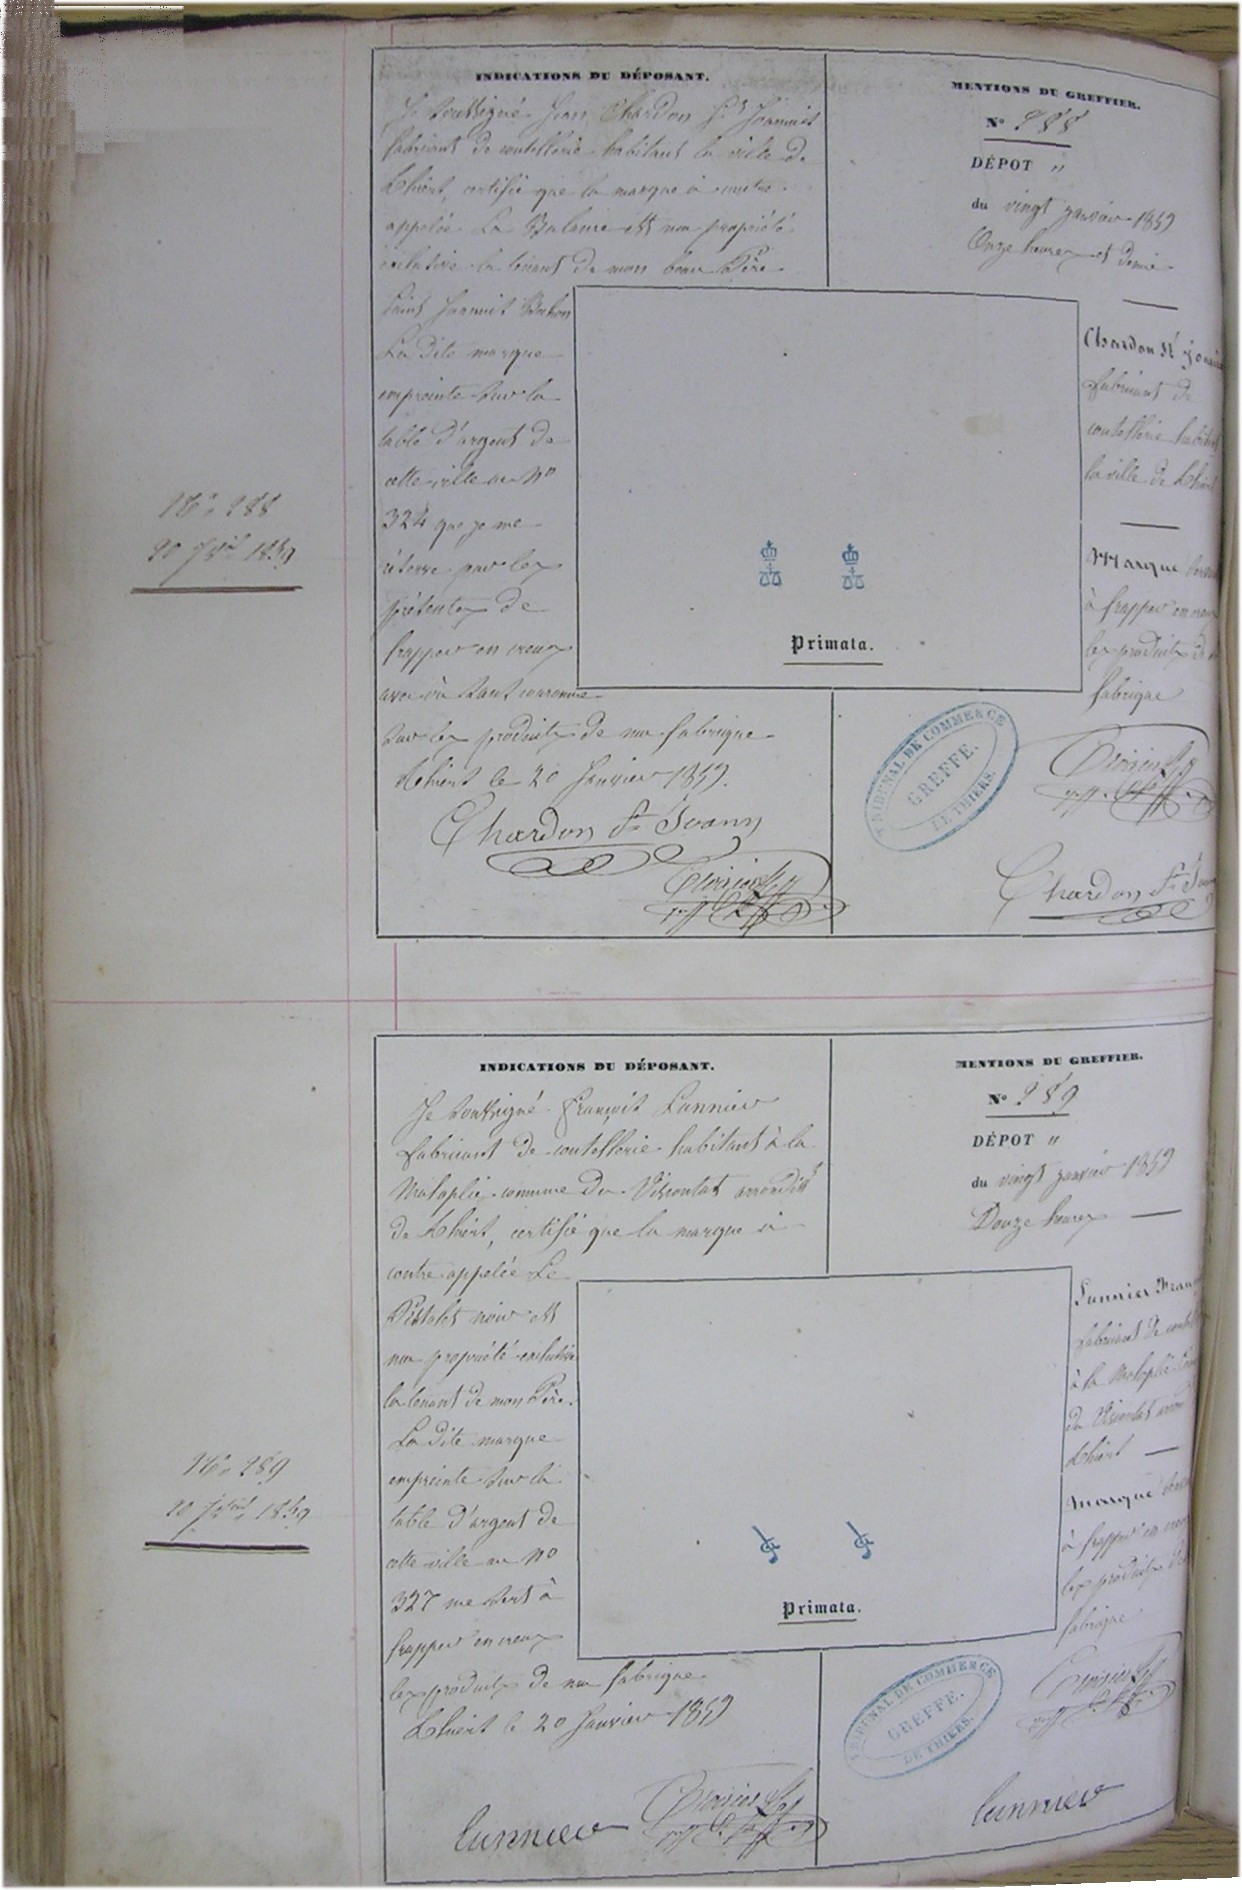 INDICATIONS DU DÉPOSANT.
Je soussigné Jean Chardon
fabricant de coutellerie habitant la ville de
Thiers, certifie que la marque ci contre
appelée La Balance est ma propriété
exclusive la tenant de mon beau Père
La dite marque
empreinte sur la
table d'argent de
cette ville au No
324 que je me
réserve par les
présentes de
frapper en creux
avec ou sans couronne
sur les produits de ma fabrique
Thiers le 20 Janvier 1859.
Chardon St Joann
MENTIONS DU GREFFIER.
N° 288
DÉPOT "
du vingt janvier 1859
Onze heures et demie
Chardon St
fabricant de
coutellerie
la ville de Thiers
Marque
à frapper en
les produits de
fabrique
Primata.
TRIBUNAL DE COMMERCE
GREFFE.
DE THIERS.
Chardon St
No 288
20 Jer 1859
INDICATIONS DU DÉPOSANT.
Je soussigné François Lannier
fabricant de coutellerie habitant à la
commune de Viscontat arrondisst
de Thiers, certifie que la marque ci
contre appelée Le
Pistolet noir est
ma propriété exclusive
la tenant de mon Père.
La dite marque
empreinte sur la
table d'argent de
cette ville au No
327 me sert à
frapper en creux
les produits de ma fabrique
Thiers le 20 Janvier 1859
Lannier
MENTIONS DU GREFFIER.
N° 289
DÉPOT "
du vingt janvier 1859
Douze heures
Lannier
fabricant de
à la
de Viscontat
Thiers
Marque
à frapper en
les produits de
fabrique
Primata.
TRIBUNAL DE COMMERCE
GREFFE.
DE THIERS.
Lannier
No 289
20 Jer 1859